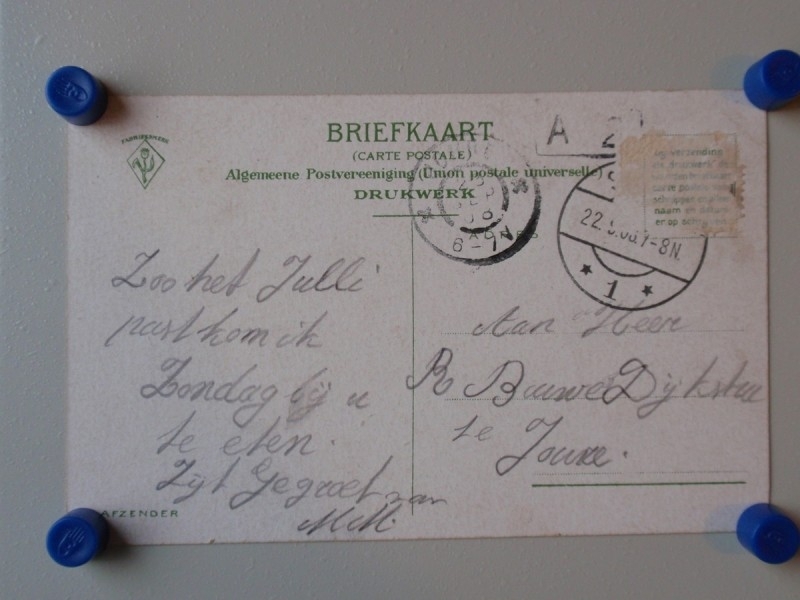 BRIEFKAART
(CARTE POSTALE)
Algemeene Postvereeniging (Union postale universelle)
DRUKWERK
A 2
6 - 7N
22. .08.7-8N.
1
Zoo het Julli
past kom ik
Zondag bij u
te eten.
Zijt Gegroet van
M.M.
AFZENDER
Aan Heer
R Bauwe Dijkstra
te Joure.